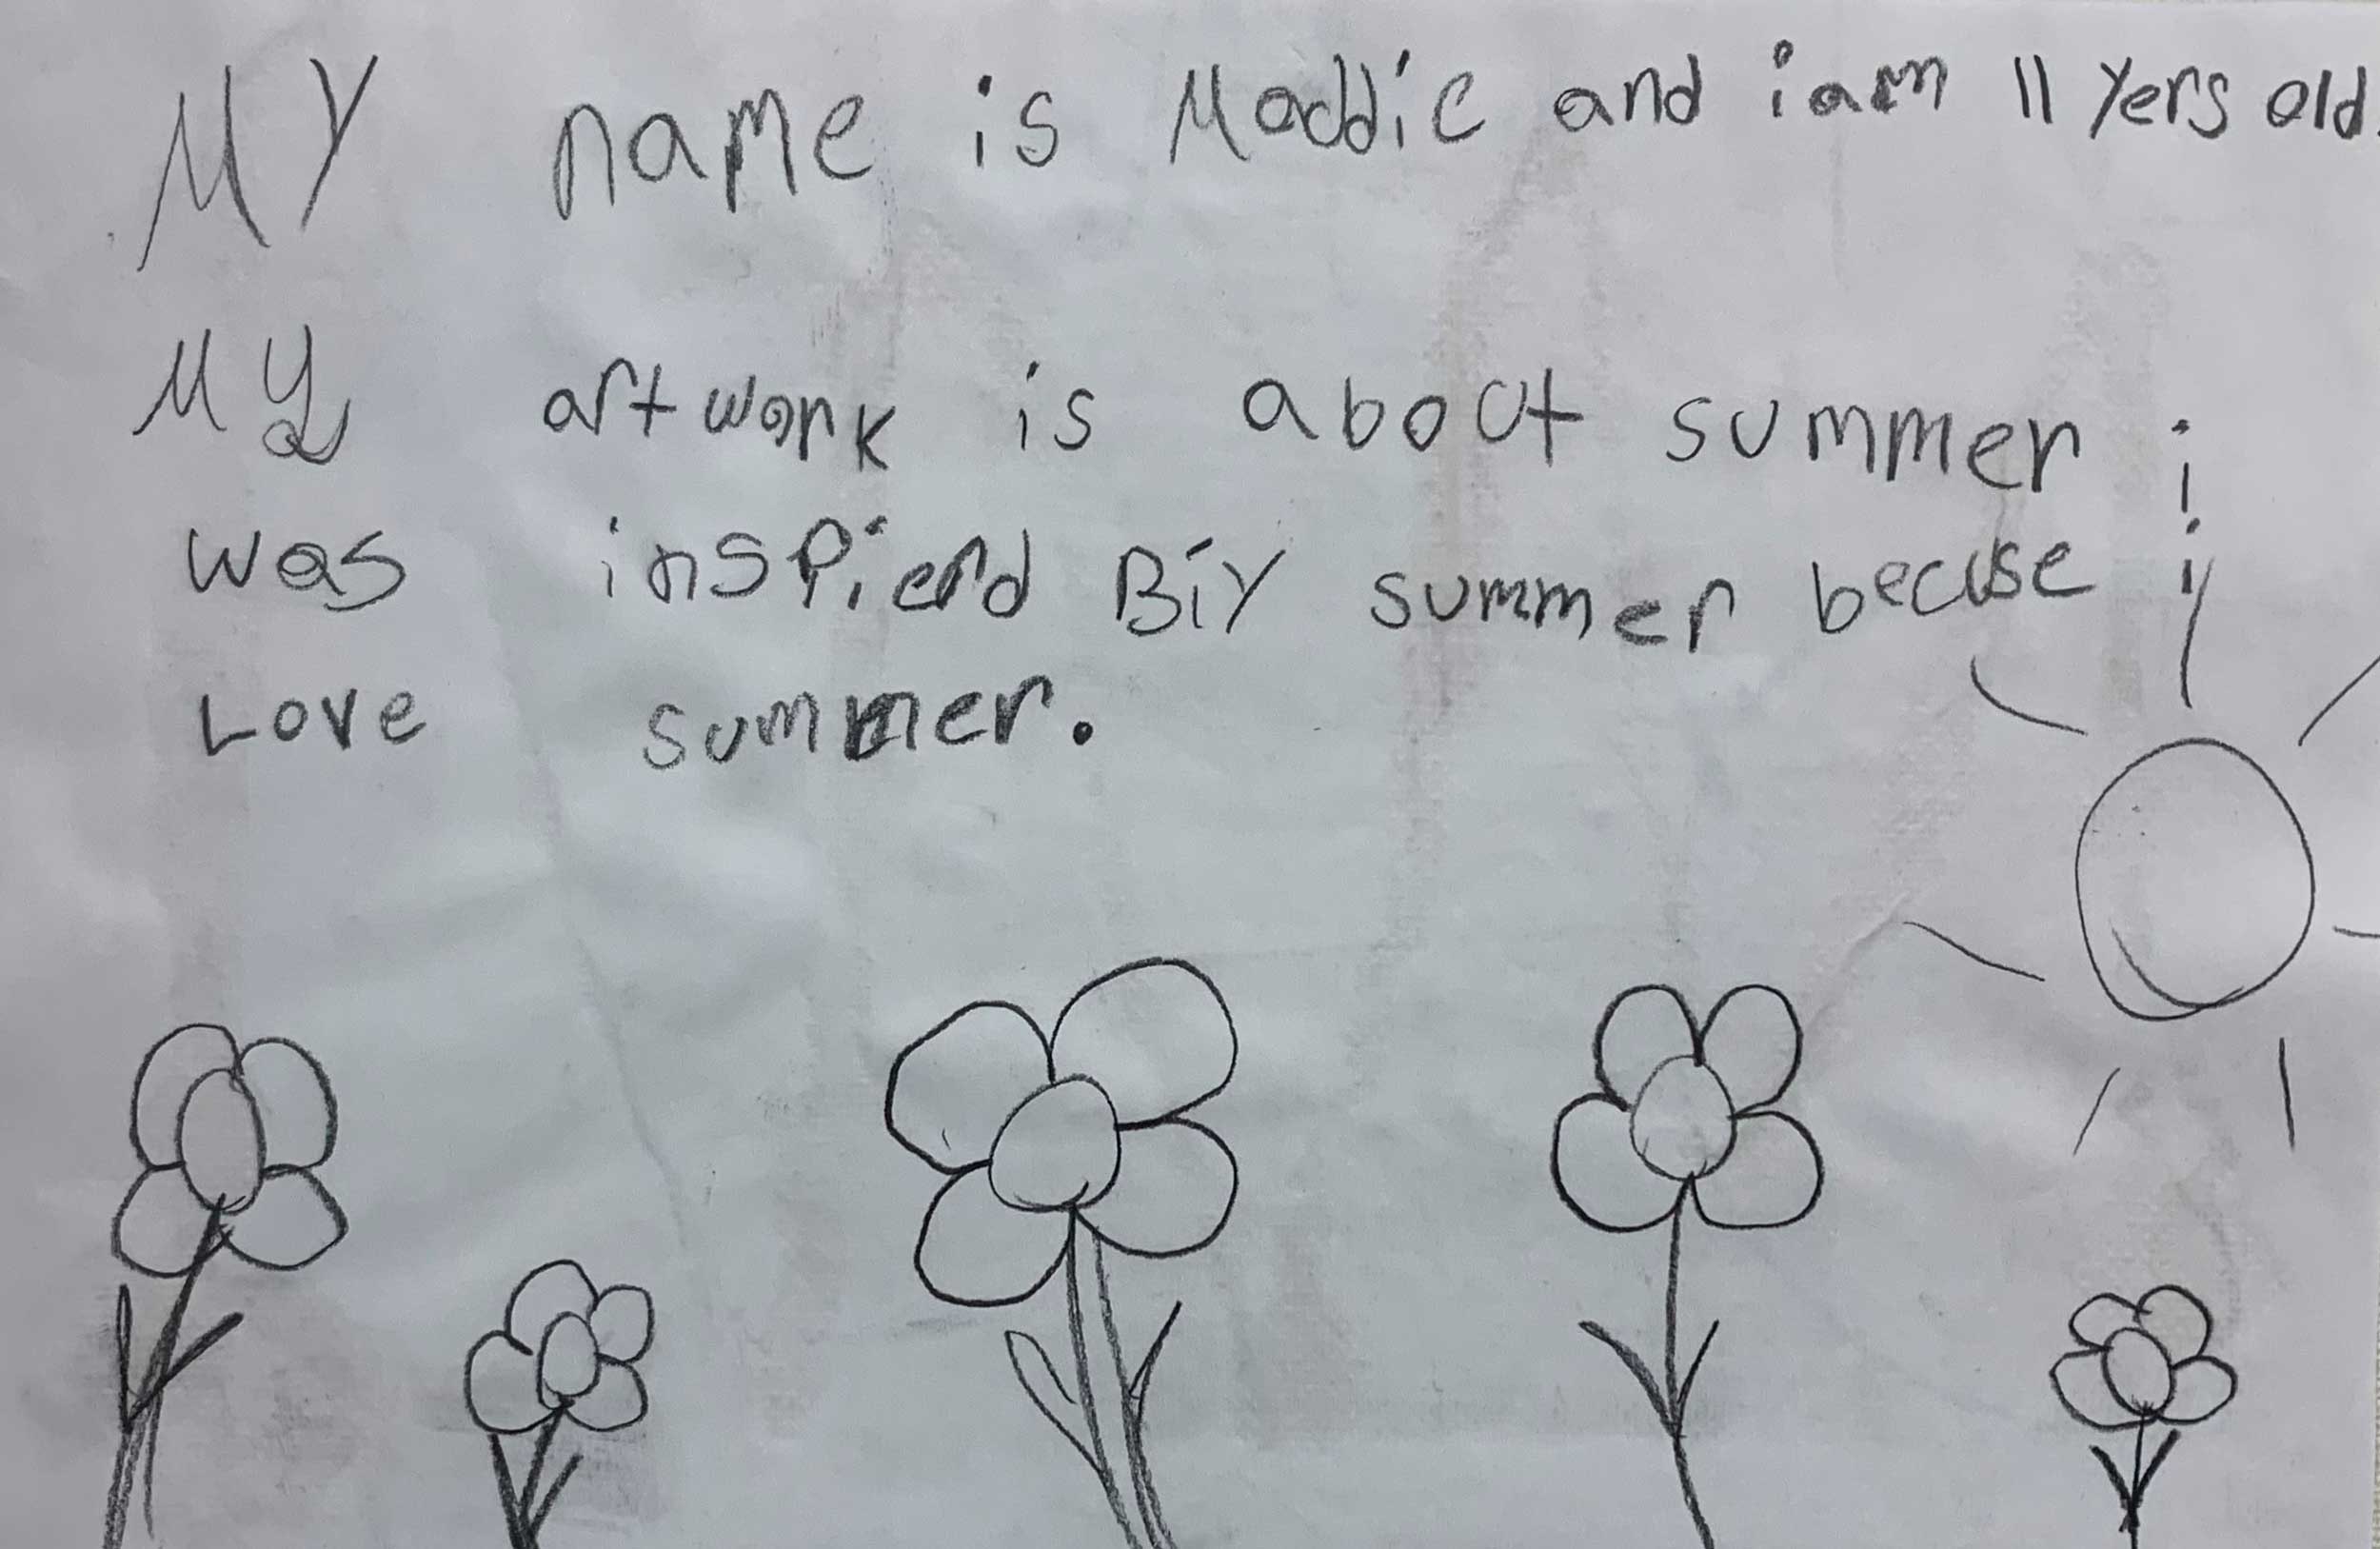 MY name is Maddie and i am 11 Yers old.
My artwork is about summer i
was inspierd BiY summer becuse i
Love summer.